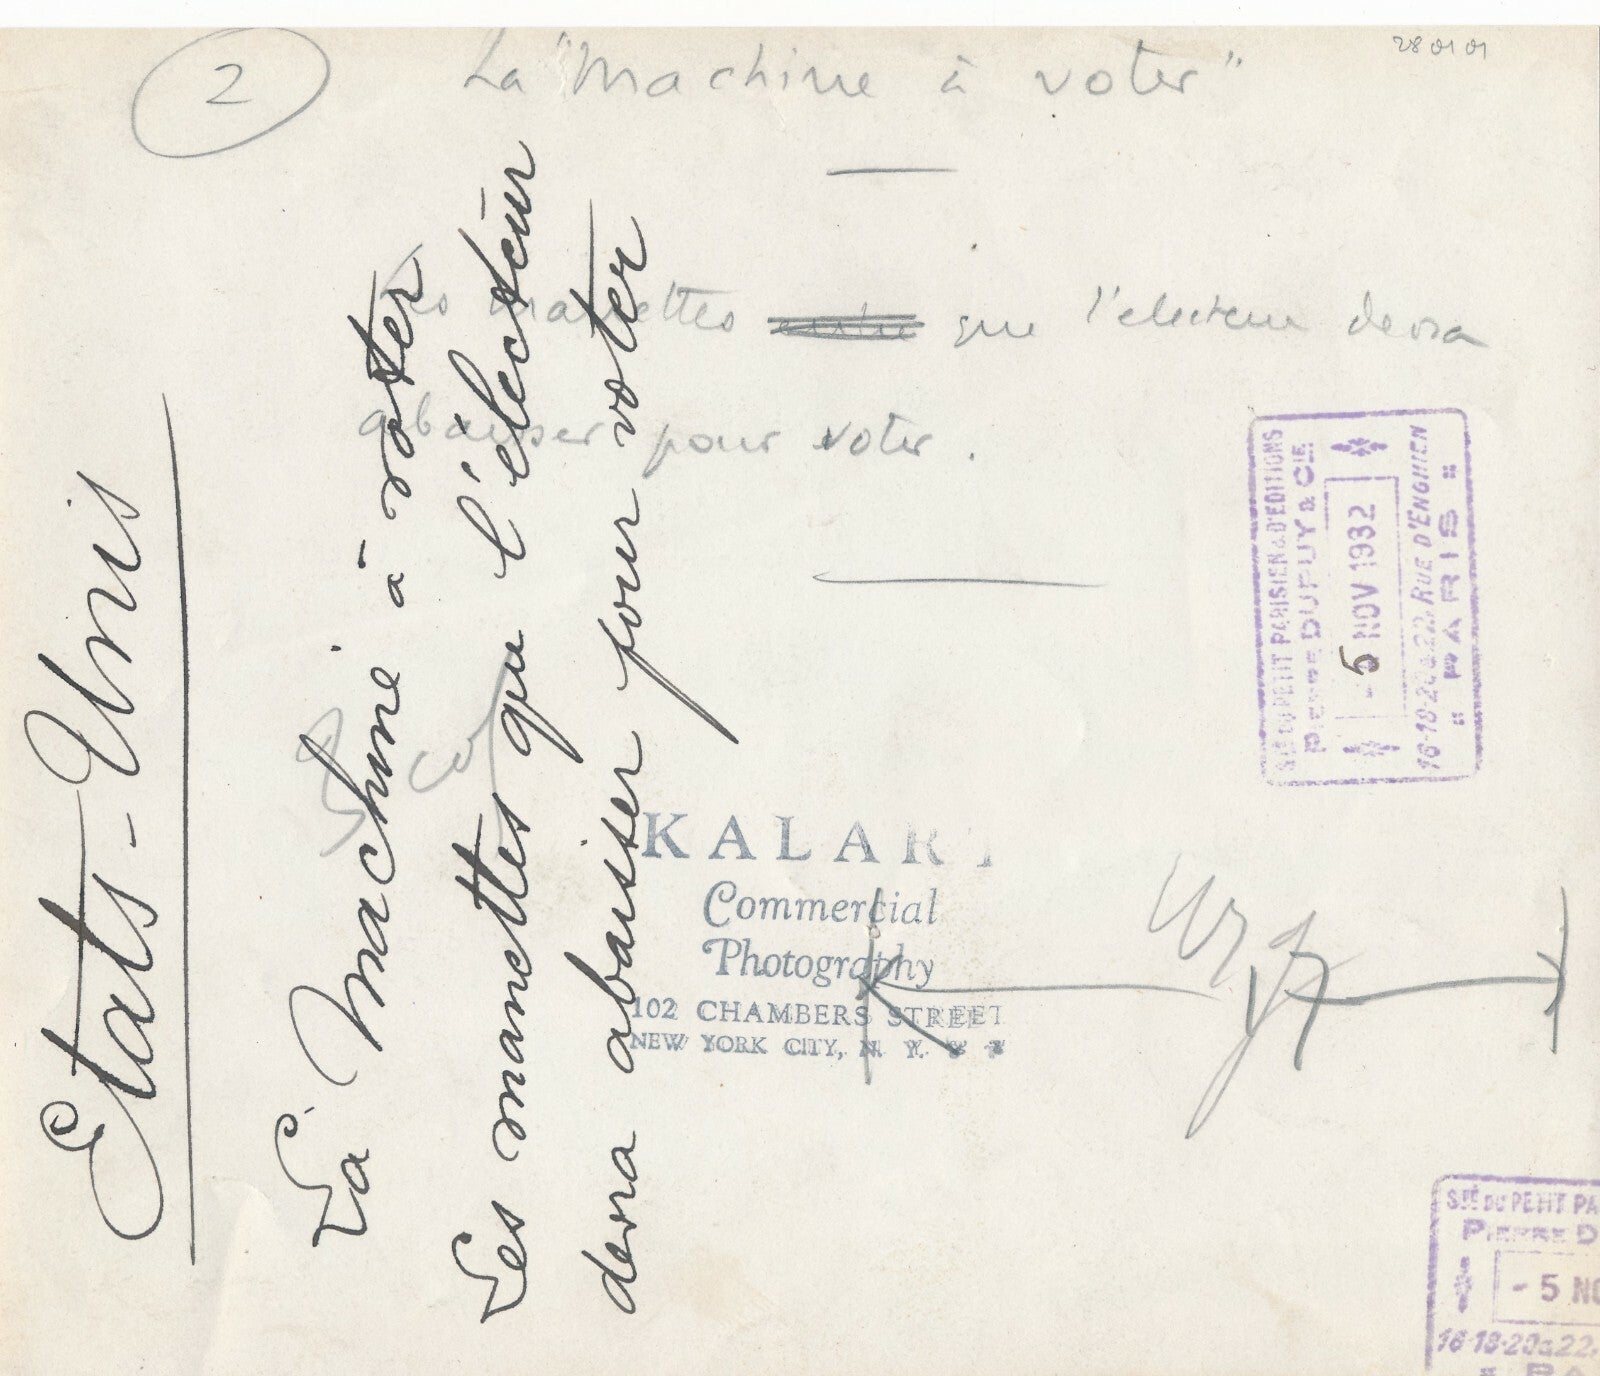 2
La "Machine à voter"
28 01 01
Les manettes que l'electeur devra
abaisser pour voter.
Etats-Unis
La Machine à voter
Les manettes que l'électeur
devra abaisser pour voter
Sté DU PETIT PARISIEN & D'EDITIONS
PIERRE DUPUY & CIE
- 5 NOV 1932
16-18-20 & 22, RUE D'ENGHIEN
" PARIS "
KALART
Commercial
Photography
102 CHAMBERS STREET
NEW YORK CITY, N. Y.
17
Sté DU PETIT PA
PIERRE D
- 5 NO
16-18-20 & 22,
" PA